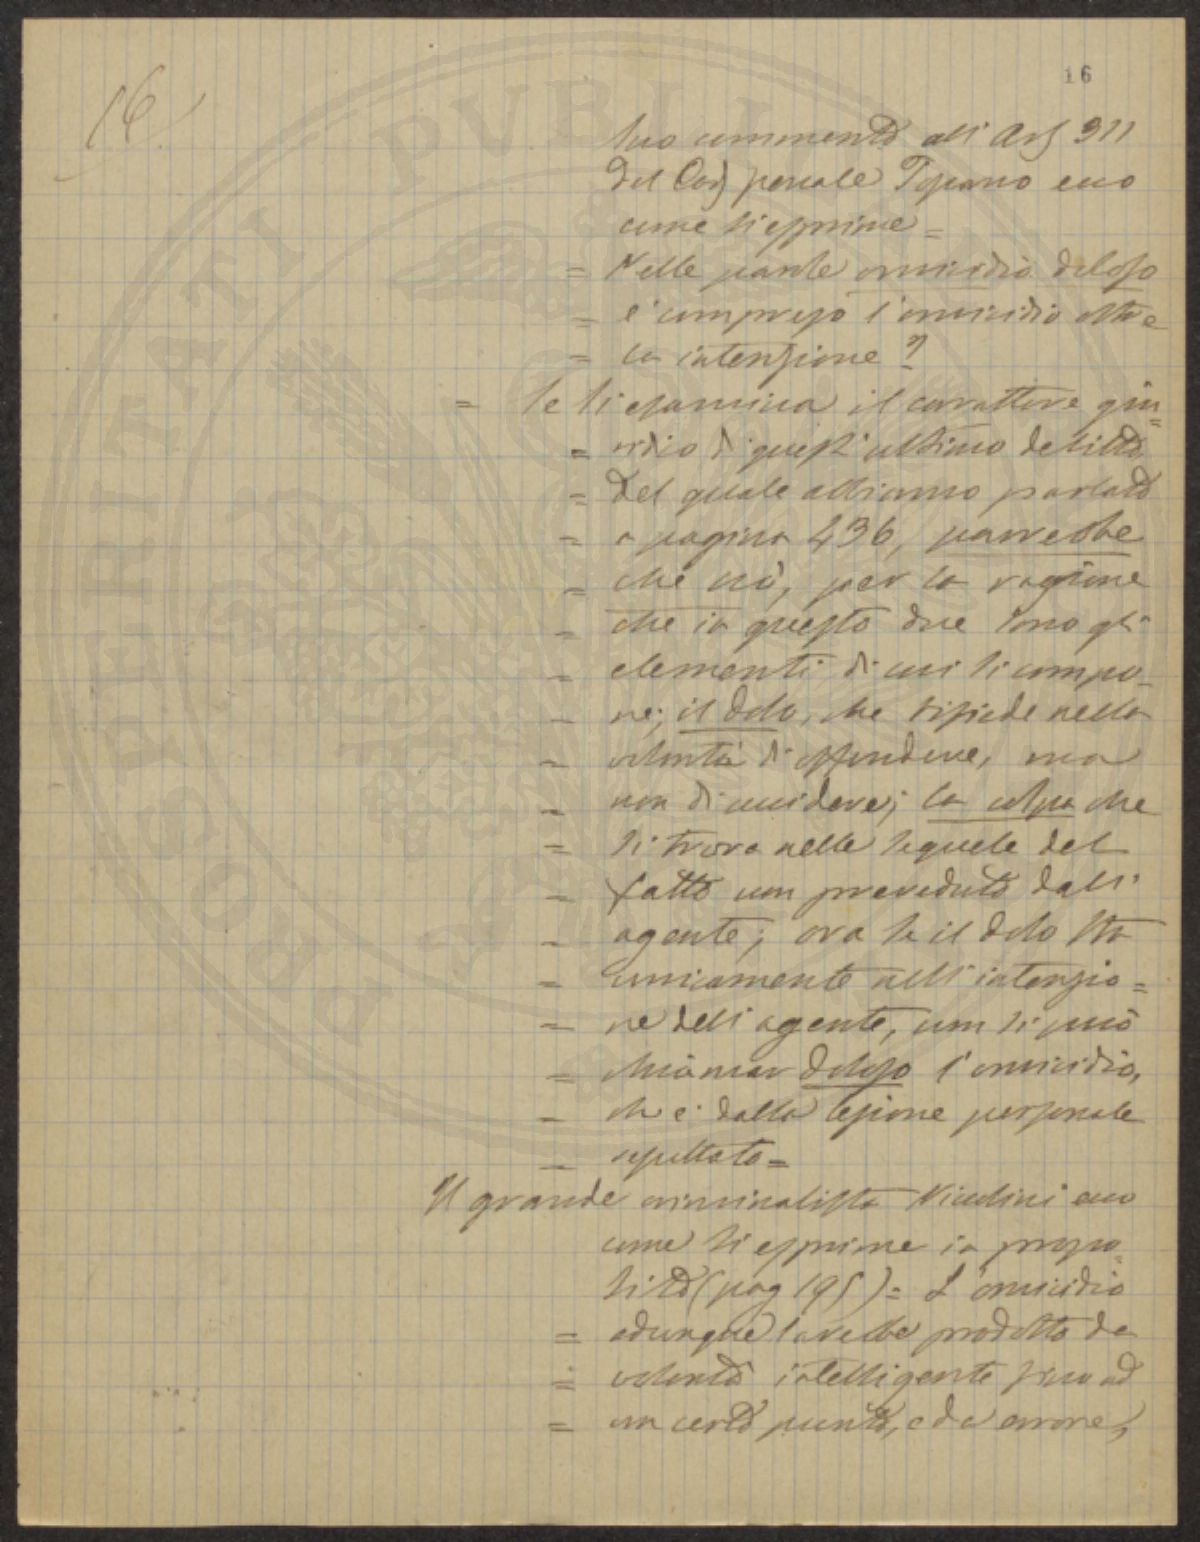 16
16
suo commento all'Art 311
del Cod penale Toscano ecco
come si esprime =
= Nelle parole omicidio doloso
= è compreso l'omicidio oltre
= la intenzione?
= Se si esamina il carattere giu=
= ridico di quest'ultimo delitto
= del quale abbiamo parlato
= a pagina 436, parrebbe
= che nò, per la ragione
= che in questo due sono gli
= elementi di cui si compo=
= ne; il dolo, che risiede nella
= volontà di offendere, ma
= non di uccidere; la colpa che
= si trova nelle sequele del
= fatto non preveduto dall'
= agente; ora se il dolo sta
= unicamente nell'intenzio=
= ne dell'agente, non si può
= chiamar doloso l'omicidio,
= che è dalla lesione personale
= resultato =
Il grande criminalista Nicolini ecco
come si esprime in propo=
sito (pag 195) = L'omicidio
= adunque sarebbe prodotto da
= volontà intelligente fino ad
= un certo punto, e da errore,
POSTERITATI PVBLI